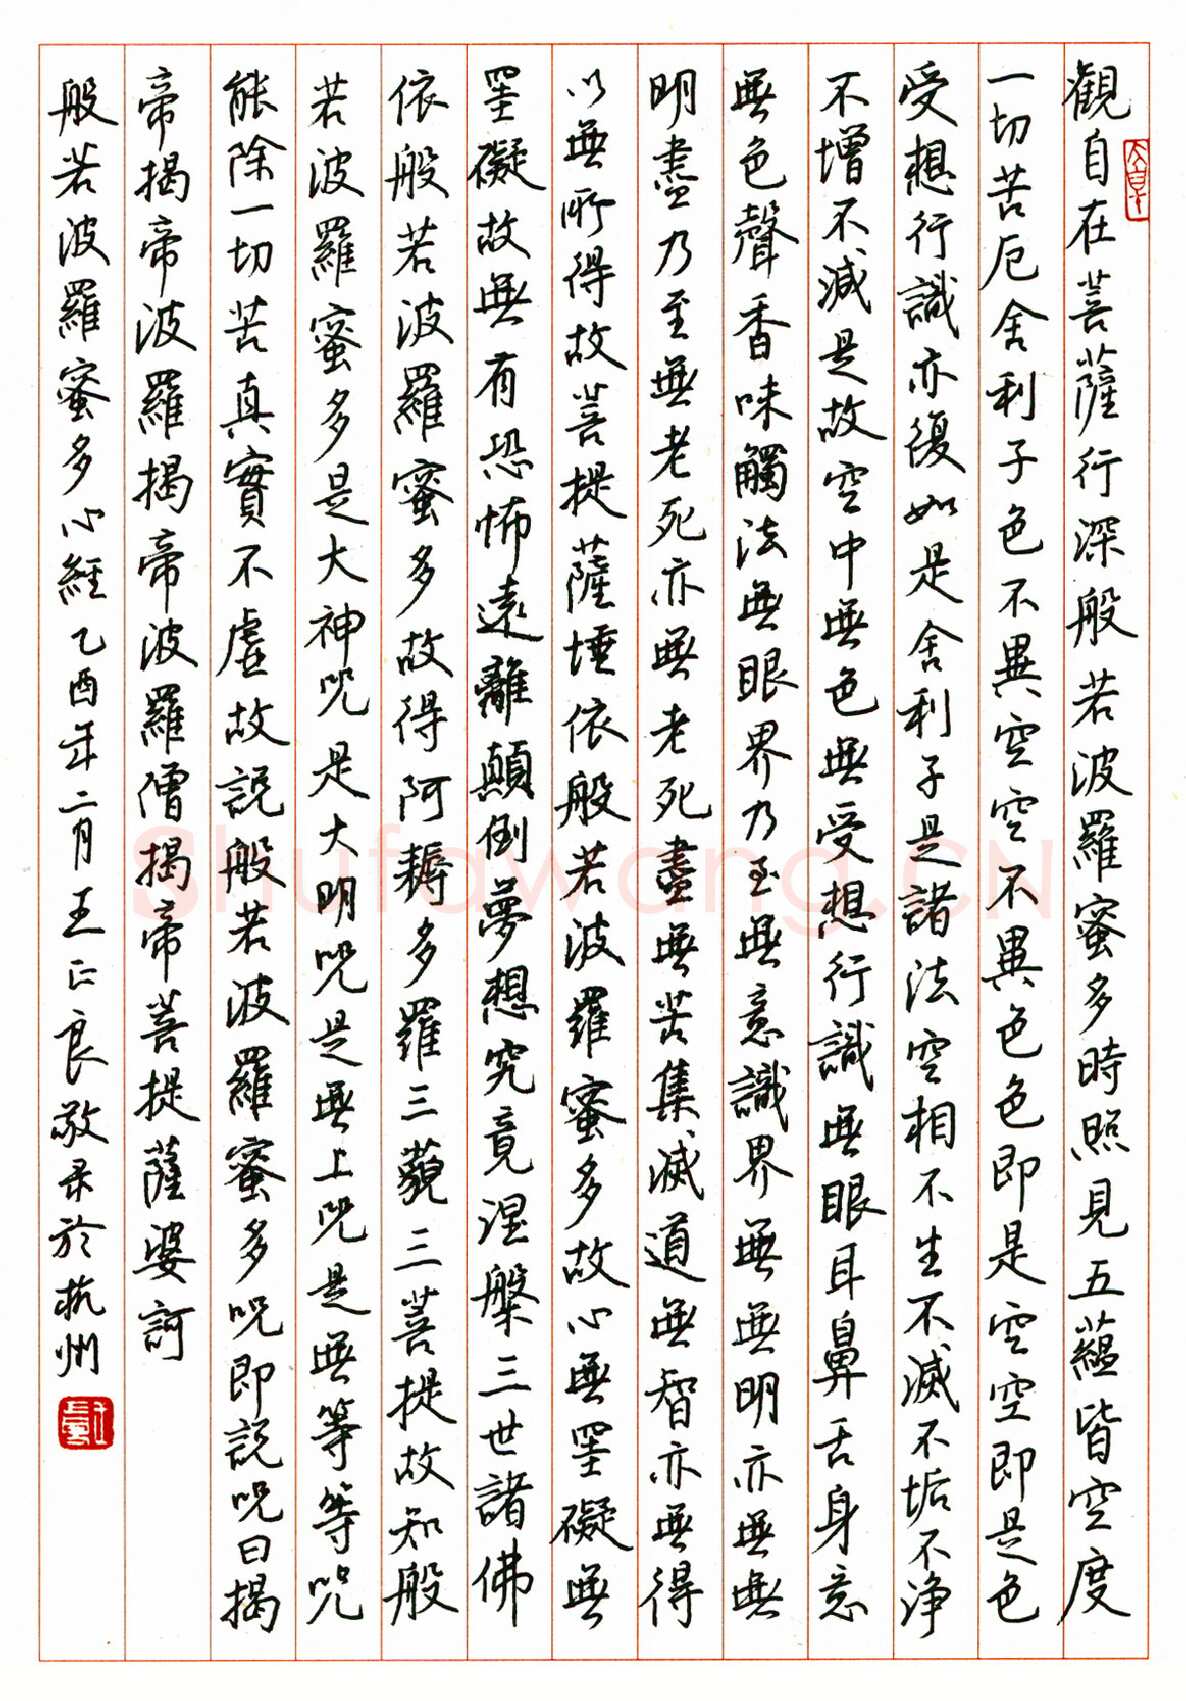 觀自在菩薩行深般若波羅蜜多時照見五蘊皆空度
一切苦厄舍利子色不異空空不異色色即是空空即是色
受想行識亦復如是舍利子是諸法空相不生不滅不垢不淨
不增不減是故空中無色無受想行識無眼耳鼻舌身意
無色聲香味觸法無眼界乃至無意識界無無明亦無無
明盡乃至無老死亦無老死盡無苦集滅道無智亦無得
以無所得故菩提薩埵依般若波羅蜜多故心無罣礙無
罣礙故無有恐怖遠離顛倒夢想究竟涅槃三世諸佛
依般若波羅蜜多故得阿耨多羅三藐三菩提故知般
若波羅蜜多是大神咒是大明咒是無上咒是無等等咒
能除一切苦真實不虛故説般若波羅蜜多咒即説咒曰揭
帝揭帝波羅揭帝波羅僧揭帝菩提薩婆訶
般若波羅蜜多心經乙酉年二月王正良敬录於杭州
Shufawang.CN